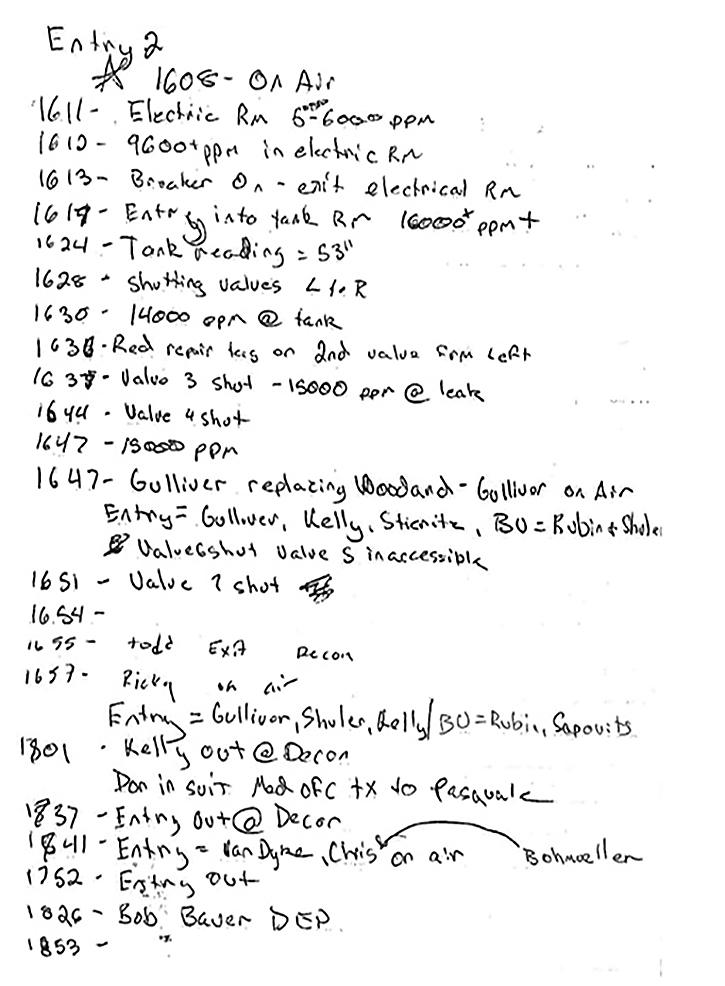 Entry 2
1608 - On Air
1611 - Electric Rm 5000-6000 ppm
1612 - 9600+ ppm in electric Rm
1613 - Breaker On - exit electrical Rm
1619 - Entry into tank Rm 16000+ ppm +
1624 - Tank reading = 53"
1628 - Shutting valves L to R
1630 - 14000 ppm @ tank
1636 - Red repair tag on 2nd valve frm Left
1637 - Valve 3 shut - 15000 ppm @ leak
1644 - Valve 4 shut
1647 - 15000 ppm
1647 - Gulliver replacing Woodand - Gulliver on Air
Entry = Gulliver, Kelly, Stienitz, BU = Rubin + Shuler
Valve 6 shut valve 5 inaccessible
1651 - Valve 7 shut
1654 -
1655 - todd Exit Decon
1657 - Ricky on air
Entry = Gulliver, Shuler, Kelly / BU = Rubin, Sapovits
1801 - Kelly out @ Decon
Don in suit Mod ofc tx to Pasquale
1837 - Entry Out @ Decon
1841 - Entry = Van Dyke, Chris on air Bohmueller
1752 - Entry out
1826 - Bob Bauer DEP
1853 -